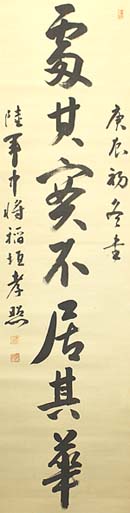 庚辰初冬書
處其實不居其華
陸軍中将稲垣孝照